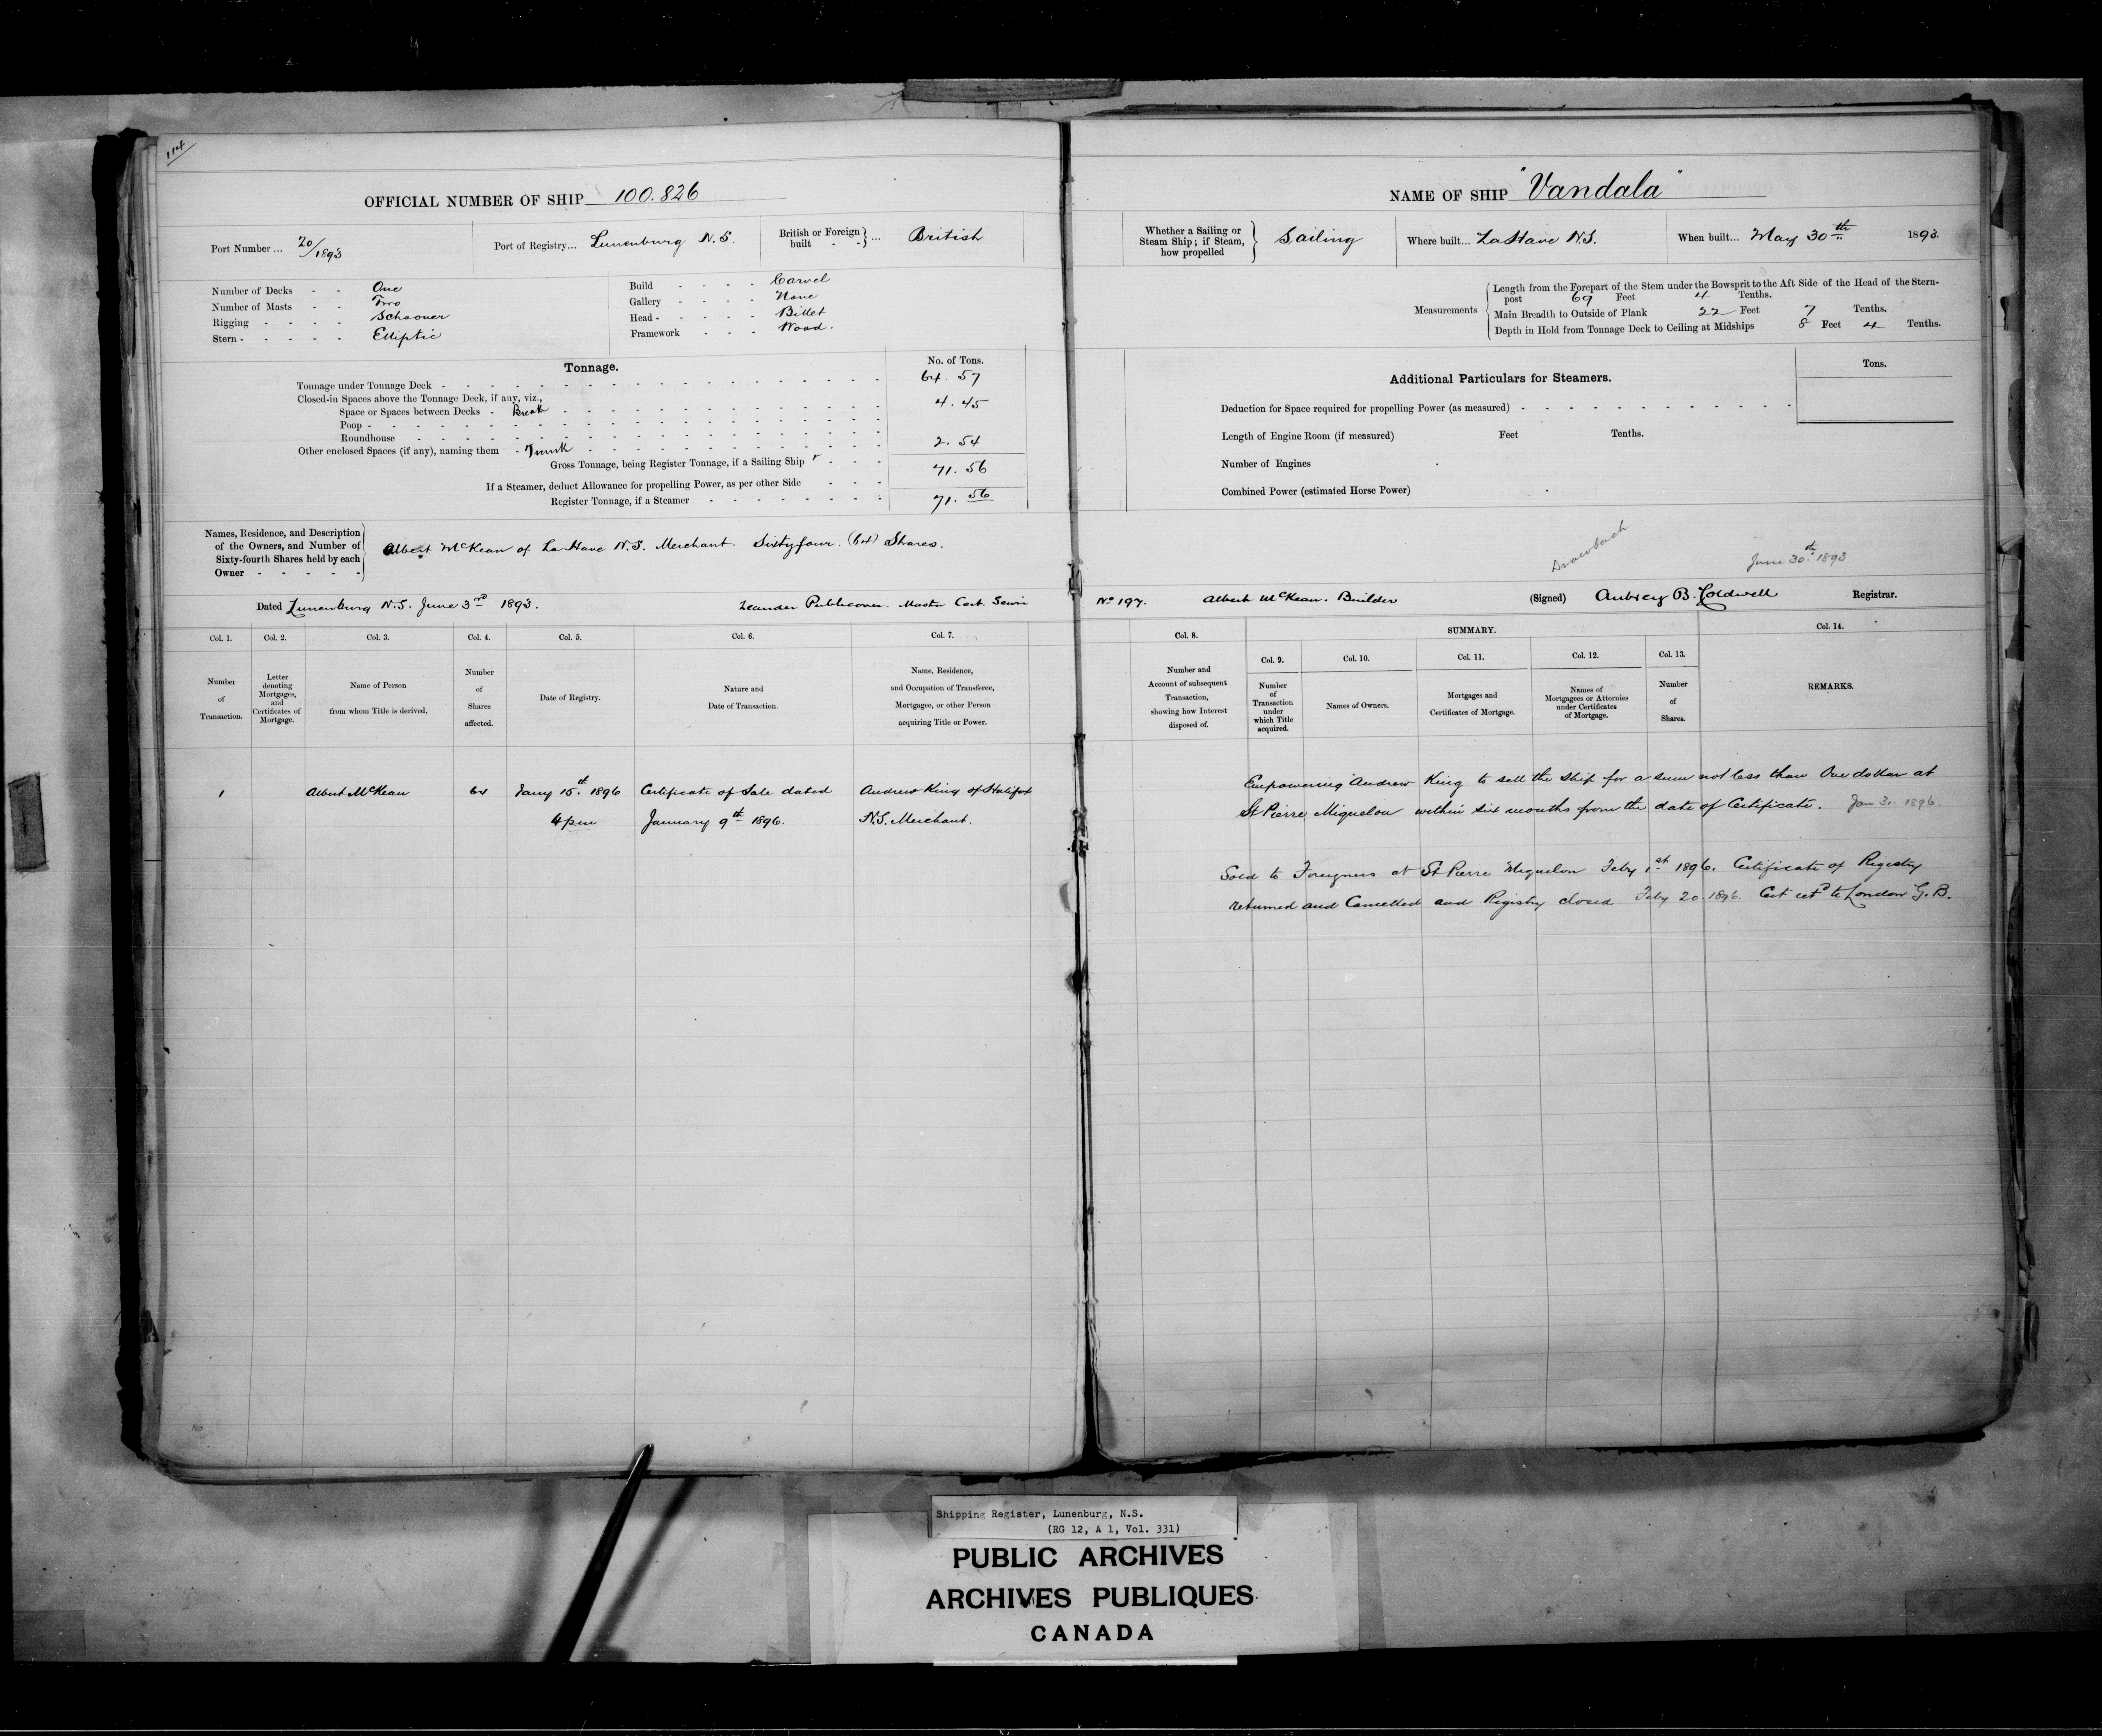 114
OFFICIAL NUMBER OF SHIP 100.826
Port Number... 20/1893 Port of Registry... Lunenburg N.S. British or Foreign built - - }... British
Number of Decks - - One
Number of Masts - - Two
Rigging - - - - Schooner
Stern - - - - - Elliptic
Build - - - - Carvel
Gallery - - - - None
Head - - - - - Billet
Framework - - - Wood.
Tonnage. No. of Tons.
Tonnage under Tonnage Deck - 64. 57
Closed-in Spaces above the Tonnage Deck, if any, viz.,
Space or Spaces between Decks - Break 4. 45
Poop -
Roundhouse
Other enclosed Spaces (if any), naming them - Trunk 2. 54
Gross Tonnage, being Register Tonnage, if a Sailing Ship 71. 56
If a Steamer, deduct Allowance for propelling Power, as per other Side
Register Tonnage, if a Steamer 71. 56
Names, Residence, and Description
of the Owners, and Number of
Sixty-fourth Shares held by each
Owner - - - - -
Albert McKean of La Have N.S. Merchant. Sixtyfour. (64) Shares.
Dated Lunenburg N.S. June 3rd 1893. Leander Publicover. Master Cert Servic
Col. 1. Col. 2. Col. 3. Col. 4. Col. 5. Col. 6. Col. 7.
Number of Transaction.
Letter denoting Mortgages, and Certificates of Mortgage.
Name of Person from whom Title is derived.
Number of Shares affected.
Date of Registry.
Nature and Date of Transaction.
Name, Residence, and Occupation of Transferee, Mortgagee, or other Person acquiring Title or Power.
1 Albert McKean 64 Jany 15th. 1896 Certificate of Sale dated Andrew King of Halifax
4 pm January 9th 1896. N.S. Merchant.
NAME OF SHIP "Vandala"
Whether a Sailing or Steam Ship; if Steam, how propelled } Sailing Where built... LaHave N.S. When built... May 30th 1893.
Measurements
Length from the Forepart of the Stem under the Bowsprit to the Aft Side of the Head of the Stern-
post 69 Feet 4 Tenths.
Main Breadth to Outside of Plank 22 Feet 7 Tenths.
Depth in Hold from Tonnage Deck to Ceiling at Midships 8 Feet 4 Tenths.
Additional Particulars for Steamers. Tons.
Deduction for Space required for propelling Power (as measured)
Length of Engine Room (if measured) Feet Tenths.
Number of Engines
Combined Power (estimated Horse Power)
Drawback June 30th. 1893
No 197. Albert McKean. Builder (Signed) Aubrey B. Coldwell Registrar.
Col. 8. SUMMARY. Col. 14.
Col. 9. Col. 10. Col. 11. Col. 12. Col. 13.
Number and Account of subsequent Transaction, showing how Interest disposed of.
Number of Transaction under which Title acquired.
Names of Owners.
Mortgages and Certificates of Mortgage.
Names of Mortgagees or Attornies under Certificates of Mortgage.
Number of Shares.
REMARKS.
Empowering Andrew King to sell the ship for a sum not less than One dollar at
St Pierre, Miquelon within six months from the date of Certificate. Jan 31. 1896.
Sold to Foreigners at St Pierre Miquelon Feby 1st 1896. Certificate of Registry
returned and Cancelled and Registry closed Feby 20. 1896. Cert retd to London G.B.
Shipping Register, Lunenburg, N.S.
(RG 12, A 1, Vol. 331)
PUBLIC ARCHIVES
ARCHIVES PUBLIQUES
CANADA